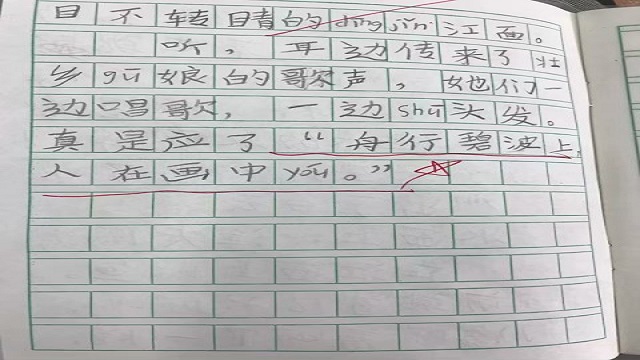 目不转睛的dīng jǐn江面。
听，耳边传来了壮
乡gū娘的歌声，她们一
边唱歌，一边shū头发。
真是应了“舟行碧波上，
人在画中yóu。”